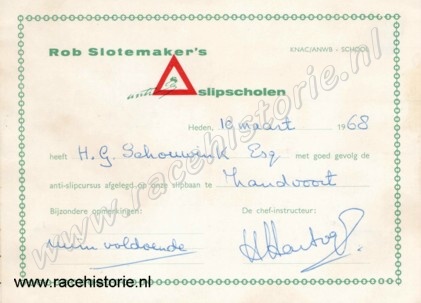 Rob Slotemaker's
KNAC/ANWB - SCHOOL
anti slipscholen
Heden, 10 maart 1968
heeft H.G. Schouwink Esq met goed gevolg de
anti-slipcursus afgelegd op onze slipbaan te Zandvoort
Bijzondere opmerkingen: De chef-instructeur:
ruim voldoende
www.racehistorie.nl
www.racehistorie.nl